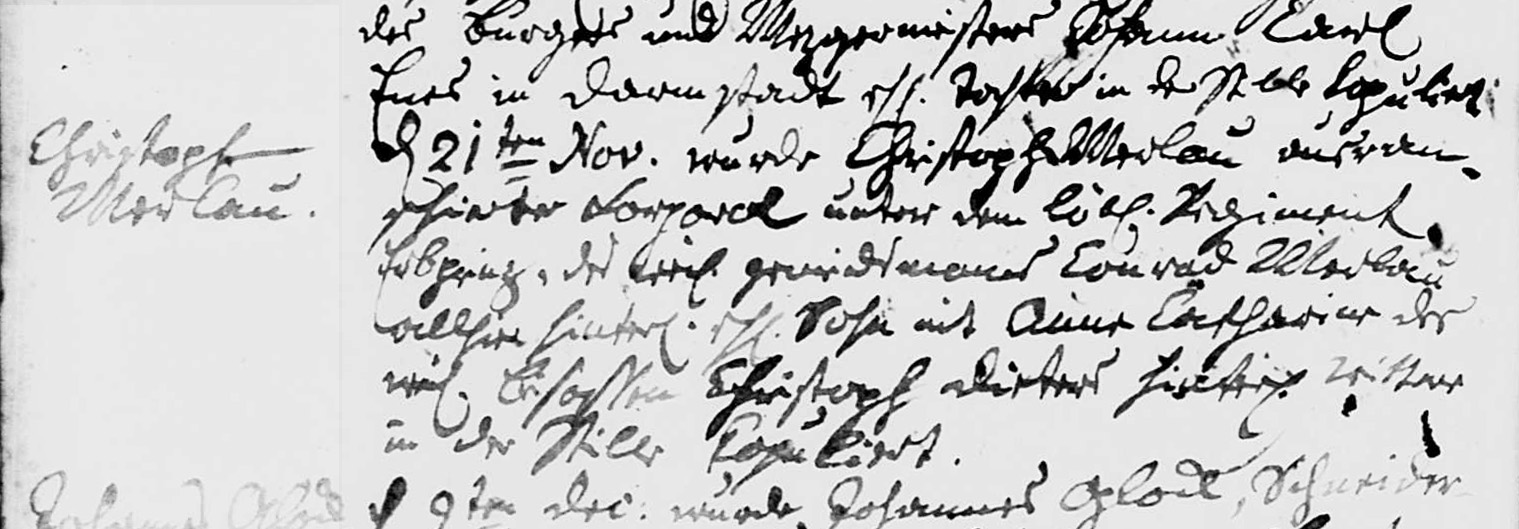 des Burgers und Mezgermeisters Johann Carl
Enes in Darmstadt ehl. Tochter in der Stille kopuliert
Christoph
Merlau.
d 21ten Nov. wurde Christoph Merlau ausran-
schirter Corporal unter dem Löbl. Regiment
Erbprinz, des weil. gemeindsmanns Conrad Merlau
allhier hinterl. ehl. Sohn mit Anne Catharine des
weil. Beisassen Christoph Dieters hinterl. Wittwe
in der Stille kopuliert.
Johannes Glock
d 9ten Dec. wurde Johannes Glock, Schneider-